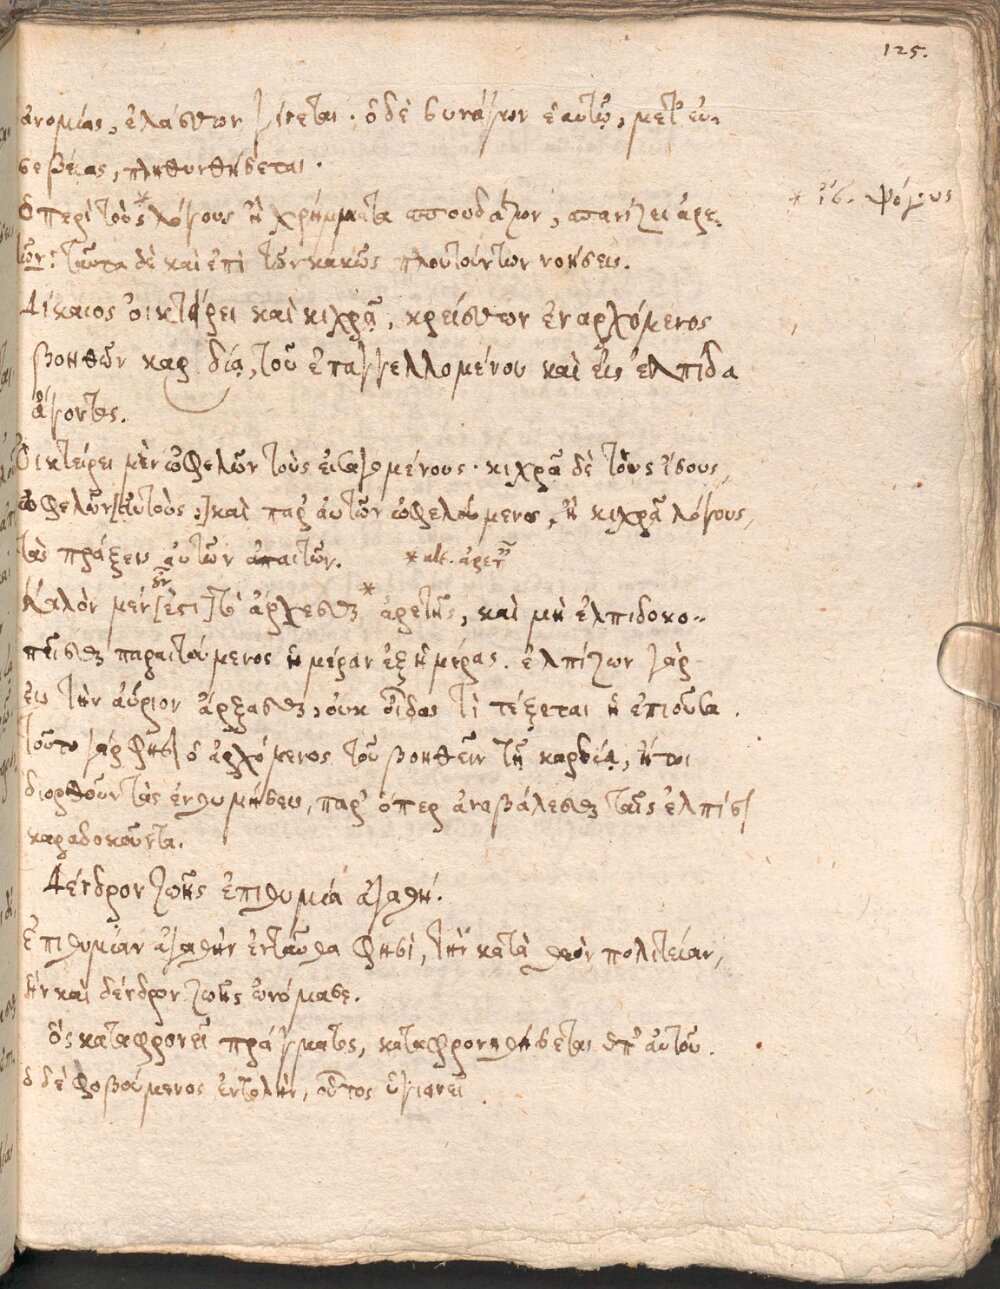 125.
ἀνομίας, ἐλάσσων γίνεται· ὁ δὲ συνάγων ἑαυτῷ, μετ' εὐ-
σεβείας, πληθυνθήσεται·
Ὁ περὶ τοὺς* λόγους ἢ χρήματα σπουδάζων, σπανίζει ἀρε-
* ἴσ. ψόγους
τῶν: ταῦτα δὲ καὶ ἐπὶ τῶν κακῶς πλουτούντων νοήσεις.
Δίκαιος οἰκτείρει καὶ κιχρᾷ, κρείσσων ἐναρχόμενος
βοηθῶν καρδίᾳ, τοῦ ἐπαγγελλομένου καὶ εἰς ἐλπίδα
ἄγοντος.
Οἰκτείρει μὲν ὠφελῶν τοὺς εἰσαγομένους· κιχρᾷ δὲ τοὺς ἴσους,
ὠφελῶν [αὐτοὺς·] καὶ παρ' αὐτῶν ὠφελούμενος, ἢ κιχρᾷ λόγους,
τὰς πράξεις αὐτῶν ἀπαιτῶν. * alt. ἀρετῶν
Καλὸν μὲν [ἐστι] τὸ ἄρχεσθαι* ἀρετῆς, καὶ μὴ ἐλπιδοκο-
πεῖσθαι παραιτούμενος ἡμέραν ἐξ ἡμέρας. ἐλπίζων γὰρ
εἰς τὴν αὔριον ἄρξασθαι, οὐκ οἶδας τί τέξεται ἡ ἐπιοῦσα.
Τοῦτο γάρ φησι ὁ ἀρχόμενος τοῦ βοηθεῖν τῇ καρδίᾳ, ἤτοι
διορθοῦν τὰς ἐνθυμήσεις, παρ' ὅπερ ἀναβάλεσθαι ταῖς ἐλπίσι
καραδοκοῦντα.
Δένδρον ζωῆς ἐπιθυμία ἀγαθή.
Ἐπιθυμίαν ἀγαθὴν ἐνταῦθα φησὶ, τὴν κατὰ θεὸν πολιτείαν,
ἣν καὶ δένδρον ζωῆς ὠνόμασε.
Ὃς καταφρονεῖ πράγματος, καταφρονηθήσεται ὑπ' αὐτοῦ.
ὁ δὲ φοβούμενος ἐντολὴν, οὗτος ὑγιαίνει